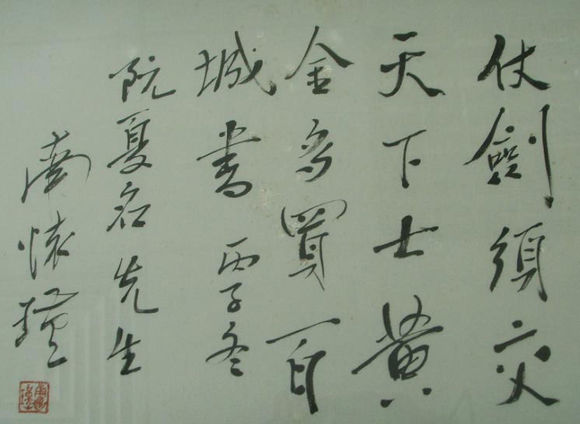 仗劍須交
天下士黄
金多買百
城書 丙子冬
阮夏名先生
南懷瑾